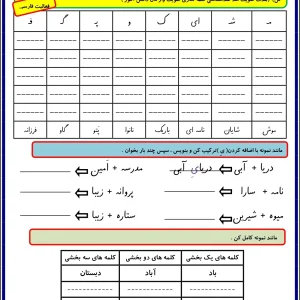 فعالیت فارسی
مـ شـ ای ک و پـ گـ فـ
موش شایان نامه ای باریک نانوا پتو گاو فرزانه
مانند نمونه با اضافه کردن( یِ )ترکیب کن و بنویس . سپس چند بار بخوان
دریا + آبی دریایِ آبی مدرسه + اَمین
نامه + سارا پروانه + زیبا
میوه + شیرین ستاره + زیبا
مانند نمونه کامل کن .
کلمه های یک بخشی کلمه های دو بخشی کلمه های سه بخشی
باد آباد دبستان